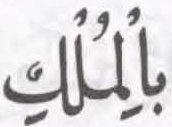 بِالْمُلْكِ